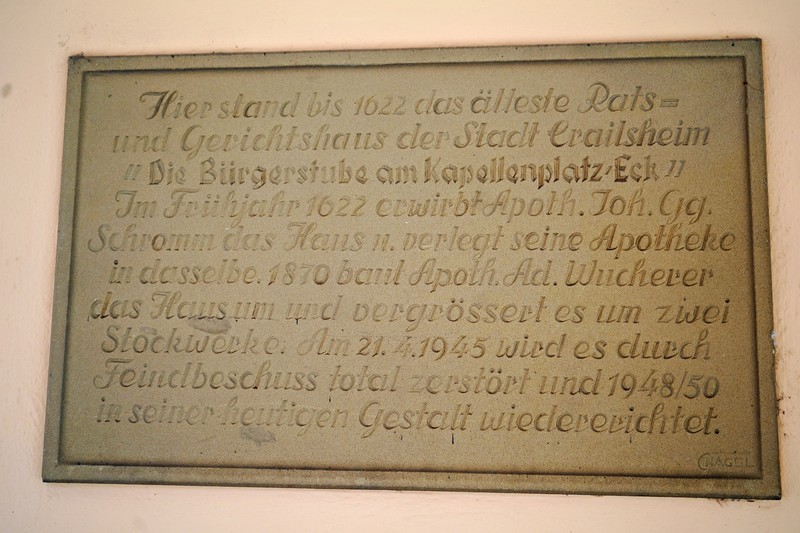 Hier stand bis 1622 das älteste Rats=
und Gerichtshaus der Stadt Crailsheim
"Die Bürgerstube am Kapellenplatz-Eck"
Im Frühjahr 1622 erwirbt Apoth. Joh. Gg.
Schromm das Haus u. verlegt seine Apotheke
in dasselbe. 1870 baut Apoth. Ad. Wucherer
das Haus um und vergrössert es um zwei
Stockwerke. Am 21.4.1945 wird es durch
Feindbeschuss total zerstört und 1948/50
in seiner heutigen Gestalt wiedererichtet.
NAGEL